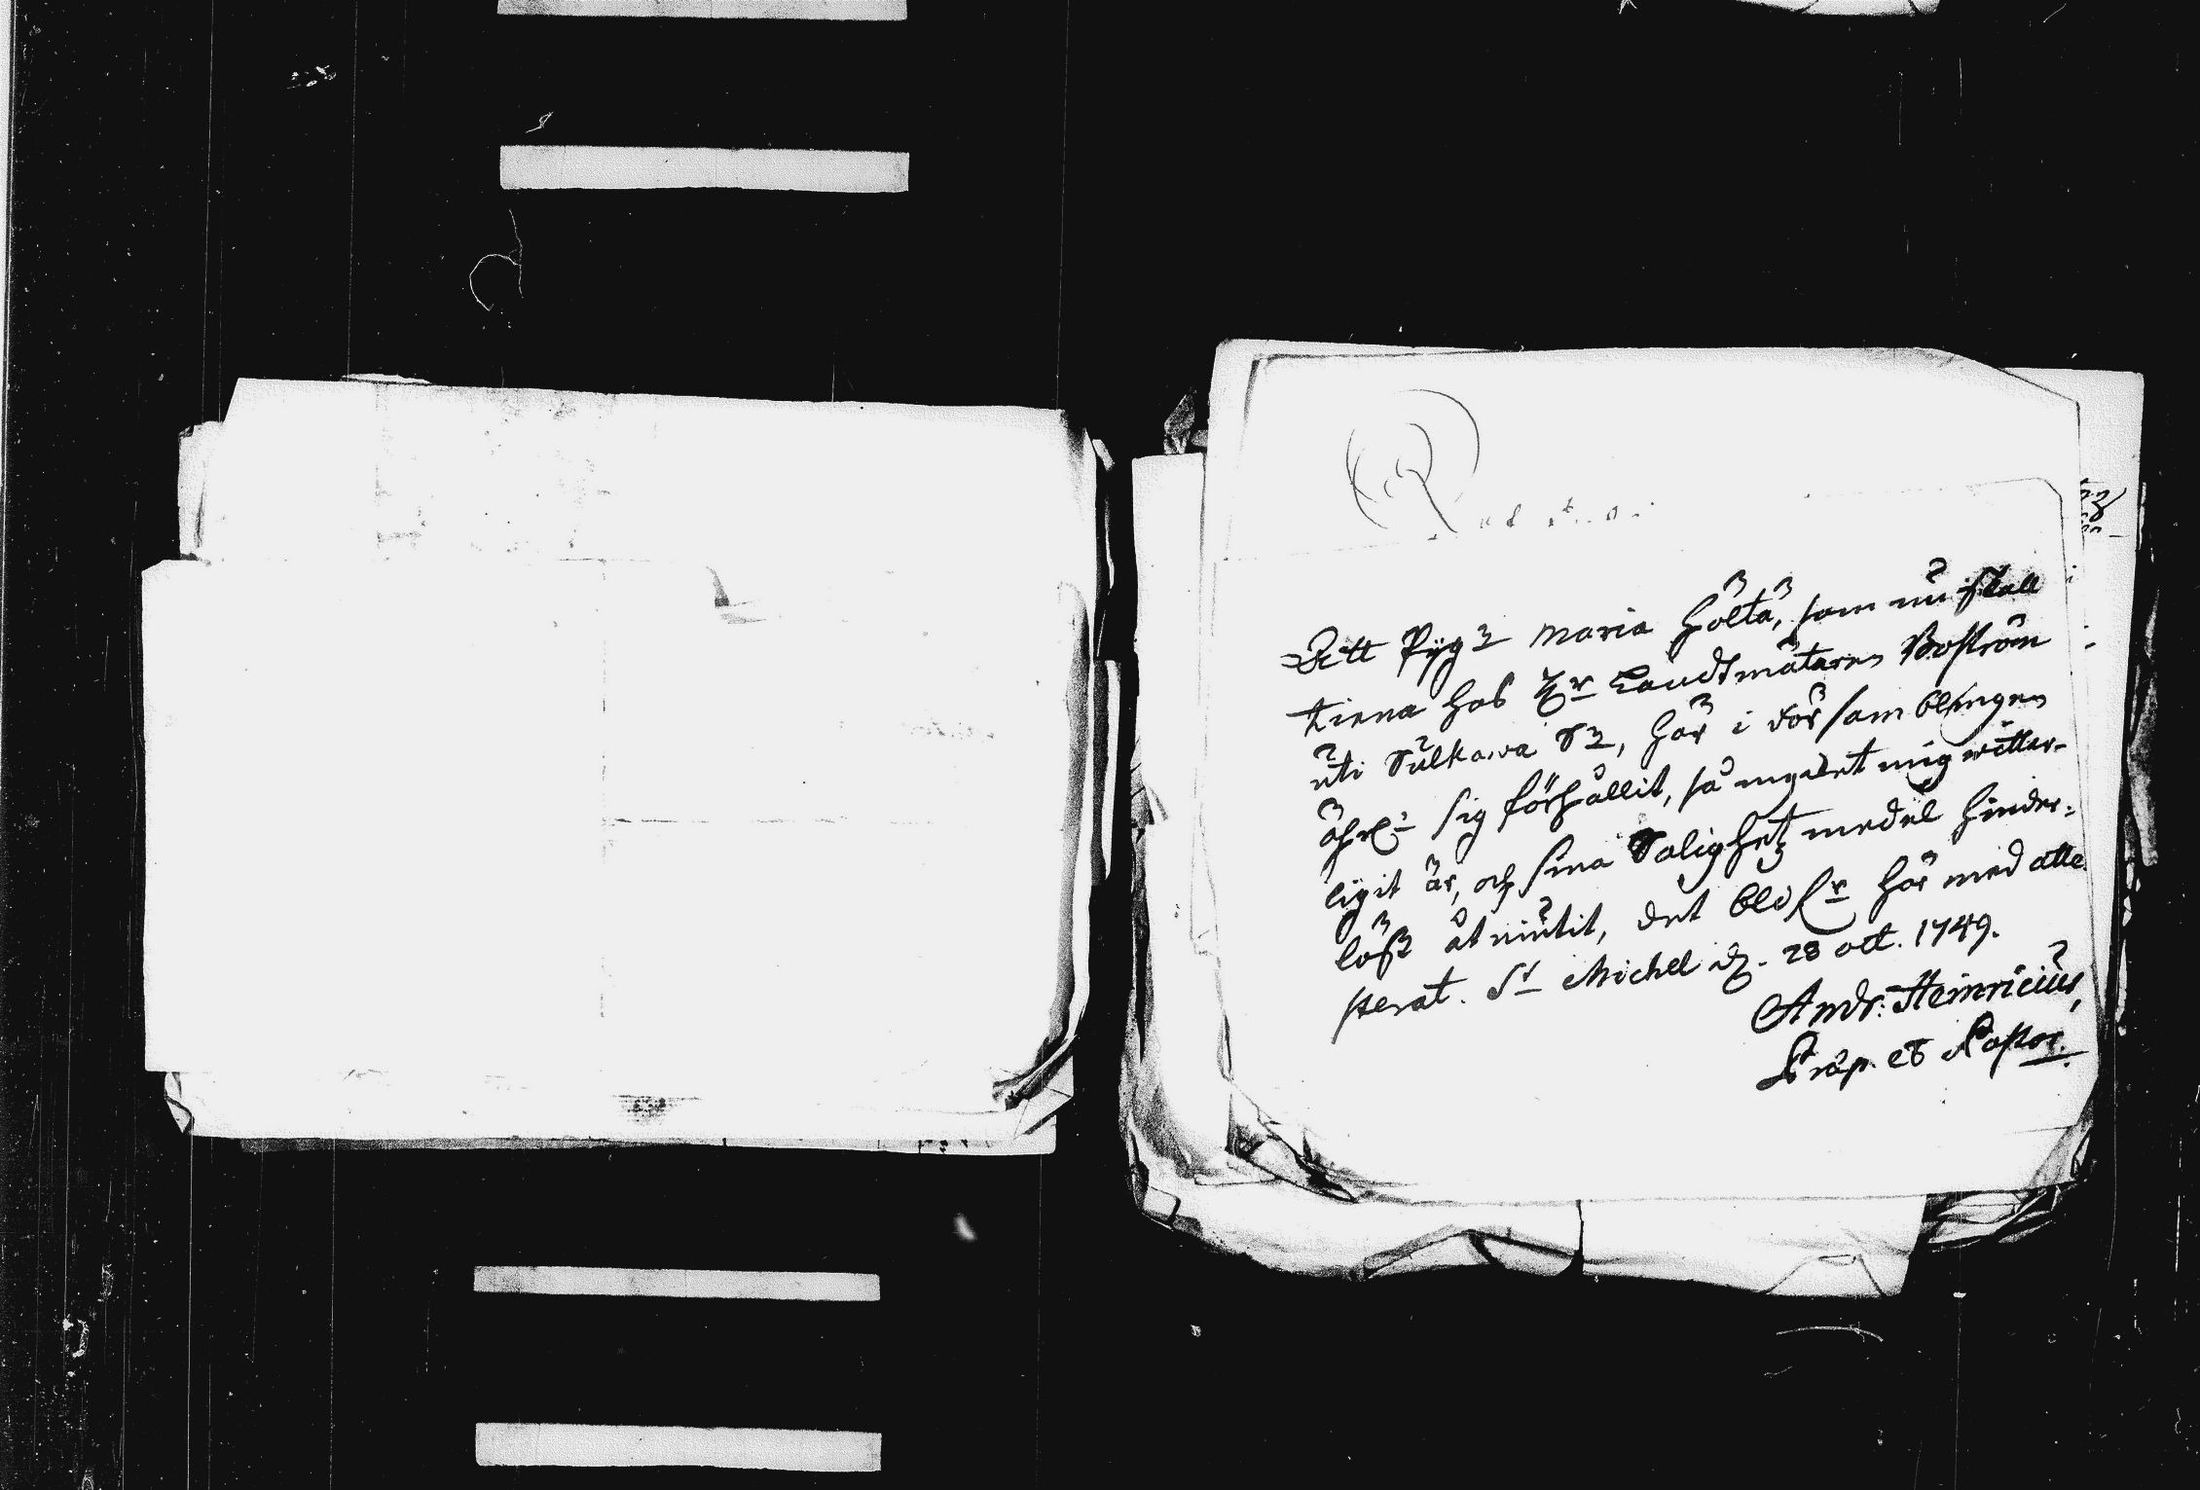 Att Pyg: Maria Höltä, som nu skall
tiena hos Hr Landtmätaren Boström
uti Sulkava S:, här i församblingen
ährl: sig förhållit, så mycket mig witter-
ligit är, och sina Salighetz medel hinder-
löst åtniutit, det blifr här med atte-
sterat. St Michel d. 28 oct. 1749.
Andr: Heinricius,
Præp. et Pastor.